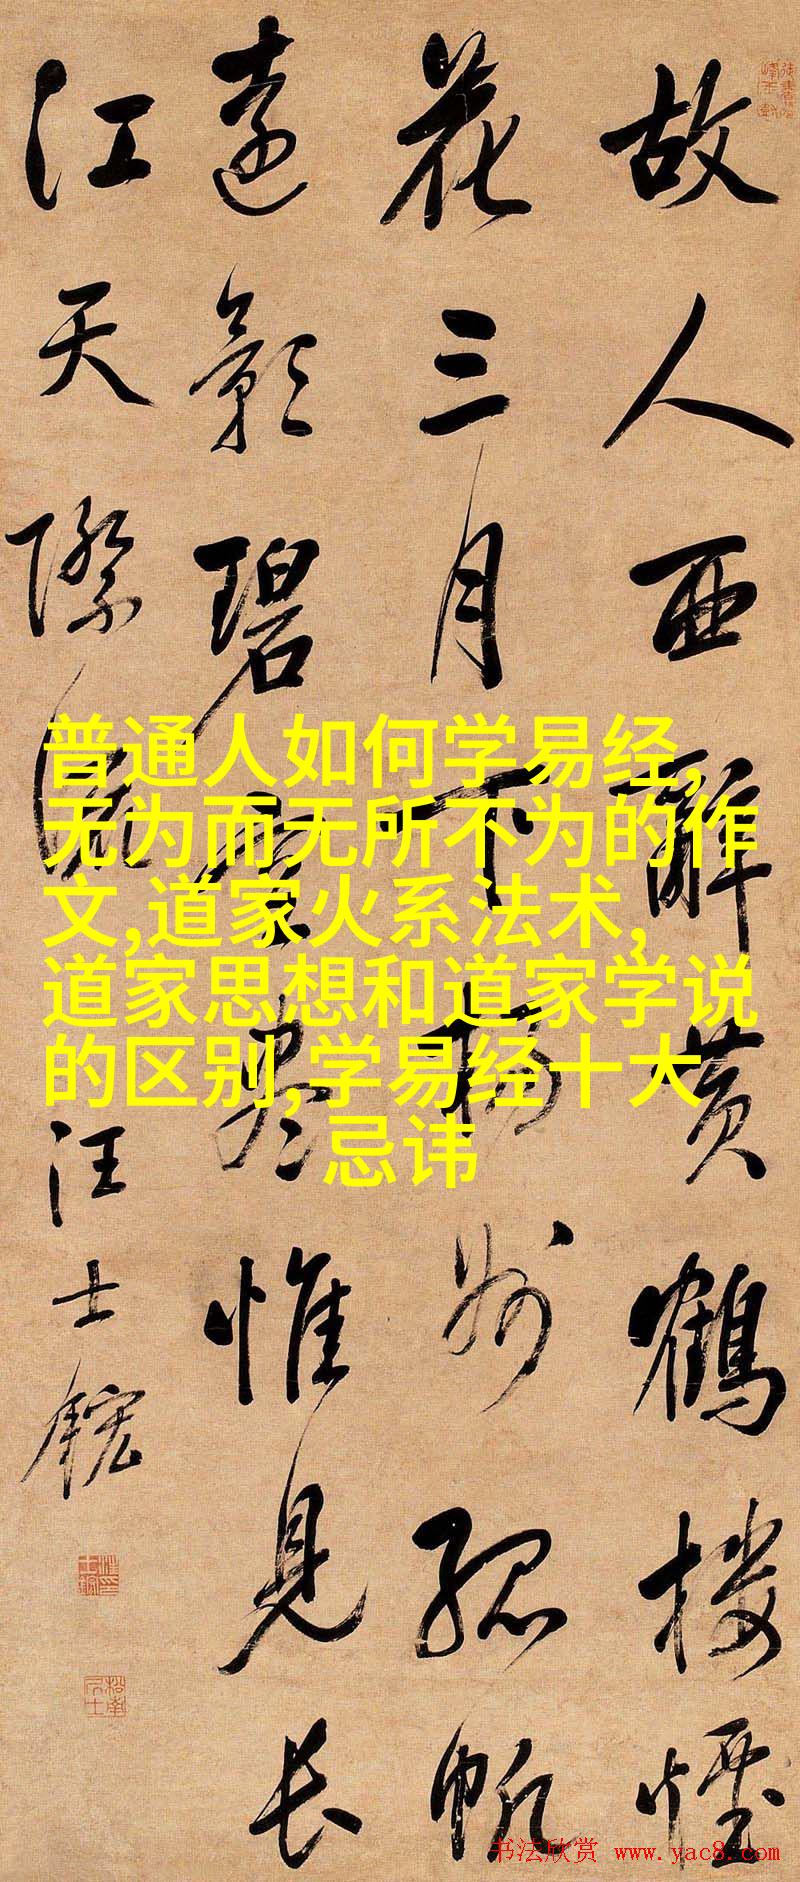 故人西辭黃鶴樓煙
花三月下揚州孤帆
遠影碧空盡惟見長
江天際流
汪士鋐
普通人如何学易经,
无为而无所不为的作
文,道家火系法术,
道家思想和道家学说
的区别,学易经十大
忌讳
书法欣赏 www.yac8.com